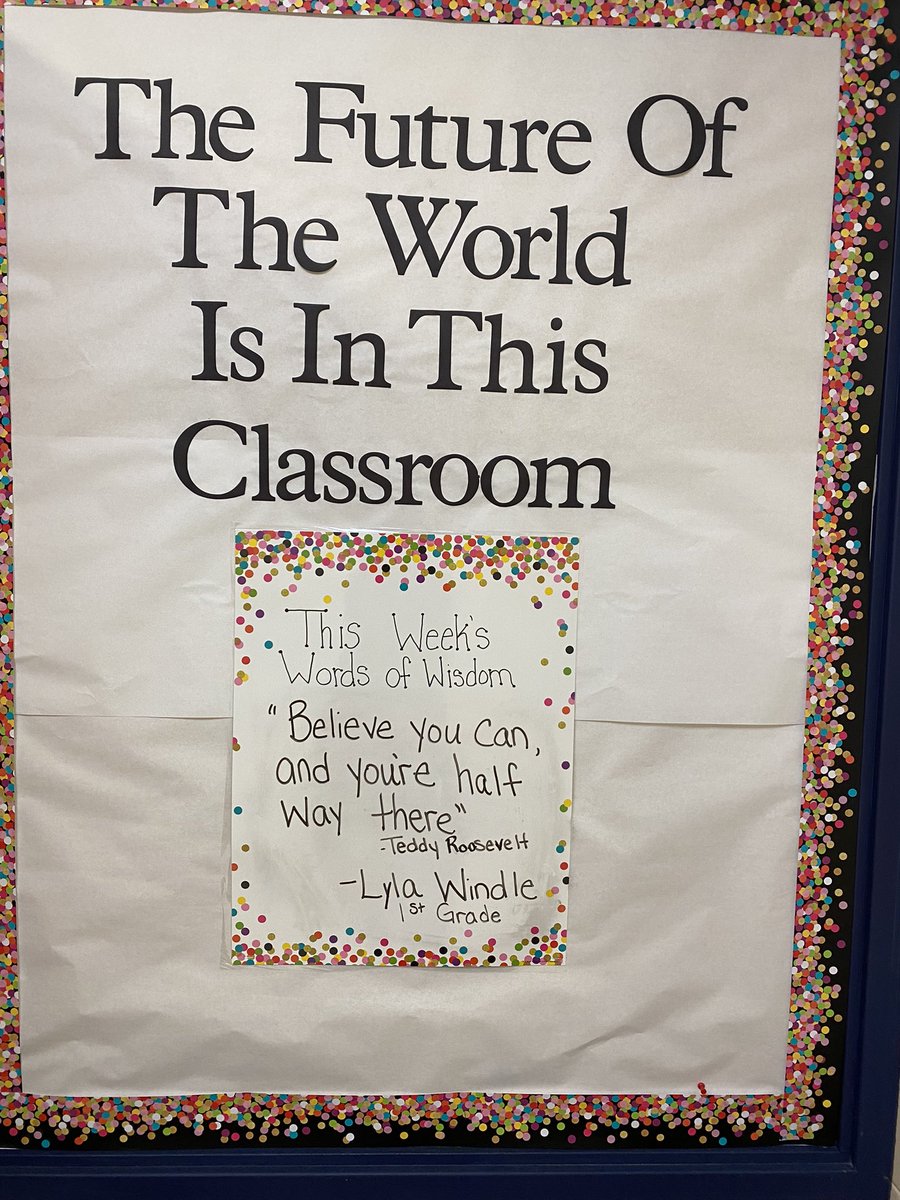 The Future Of
The World
Is In This
Classroom
This Week's
Words of Wisdom
"Believe you can,
and you're half
way there"
-Teddy Roosevelt
-Lyla Windle
1st Grade